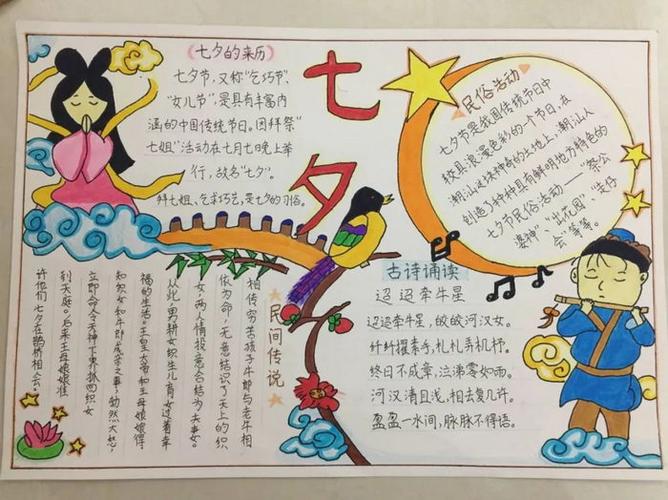 七夕
(七夕的来历)
七夕节，又称"乞巧节"、
"女儿节"，是具有丰富内
涵的中国传统节日。因拜祭"
七姐"活动在七月七晚上举
行，故名"七夕"。
拜七姐、乞求巧艺，是七夕的习俗。
民俗活动
七夕节是我国传统节日中
较具浪漫色彩的一个节日，在
潮汕这块神奇的土地上，潮汕人
创造了种种具有鲜明地方特色的
七夕节民俗活动——"祭公
婆神"、"出花园"、"走仔
会"等等。
民间传说
相传穷苦孩子牛郎与老牛相
依为命，无意结识了天上的织
女，两人情投意合结为夫妻。
从此，男耕女织生儿育女过着幸
福的生活。玉皇大帝和王母娘娘得
知织女和牛郎成亲之事，勃然大怒，
立即命人令天神下界抓回织女
到天庭。后来王母娘娘准
许他们七夕在鹊桥相会。
古诗诵读
迢迢牵牛星
迢迢牵牛星，皎皎河汉女。
纤纤擢素手，札札弄机杼。
终日不成章，泣涕零如雨。
河汉清且浅，相去复几许。
盈盈一水间，脉脉不得语。